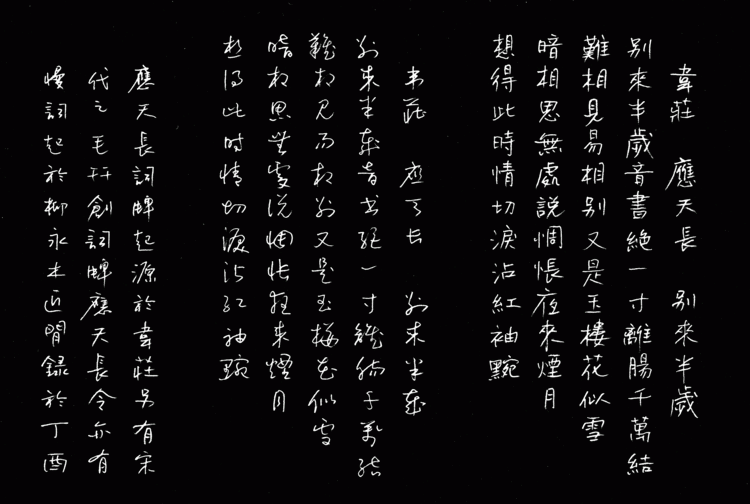 韋莊 應天長 別來半歲
別來半歲音書絕一寸離腸千萬結
難相見易相別又是玉樓花似雪
暗相思無處說惆悵夜來煙月
想得此時情切淚沾紅袖黦
韋莊 應天長 別來半歲
別來半歲音書絕一寸離腸千萬結
難相見而相別又是玉樓花似雪
暗相思無處說惆悵夜來煙月
想得此時情切淚沾紅袖黦
應天長詞牌起源於韋莊另有宋
代之毛幵創詞牌應天長令亦有
慢詞起於柳永士近閒錄於丁酉